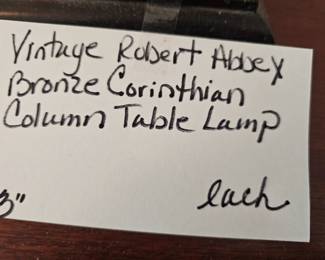 Vintage Robert Abbey
Bronze Corinthian
Column Table Lamp
3" each